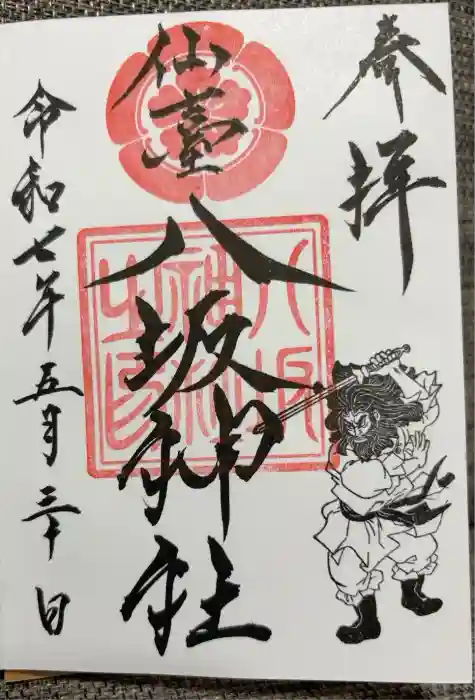 奉拝
仙臺
八坂神社
令和七年五月三十日
八坂
神社
之印